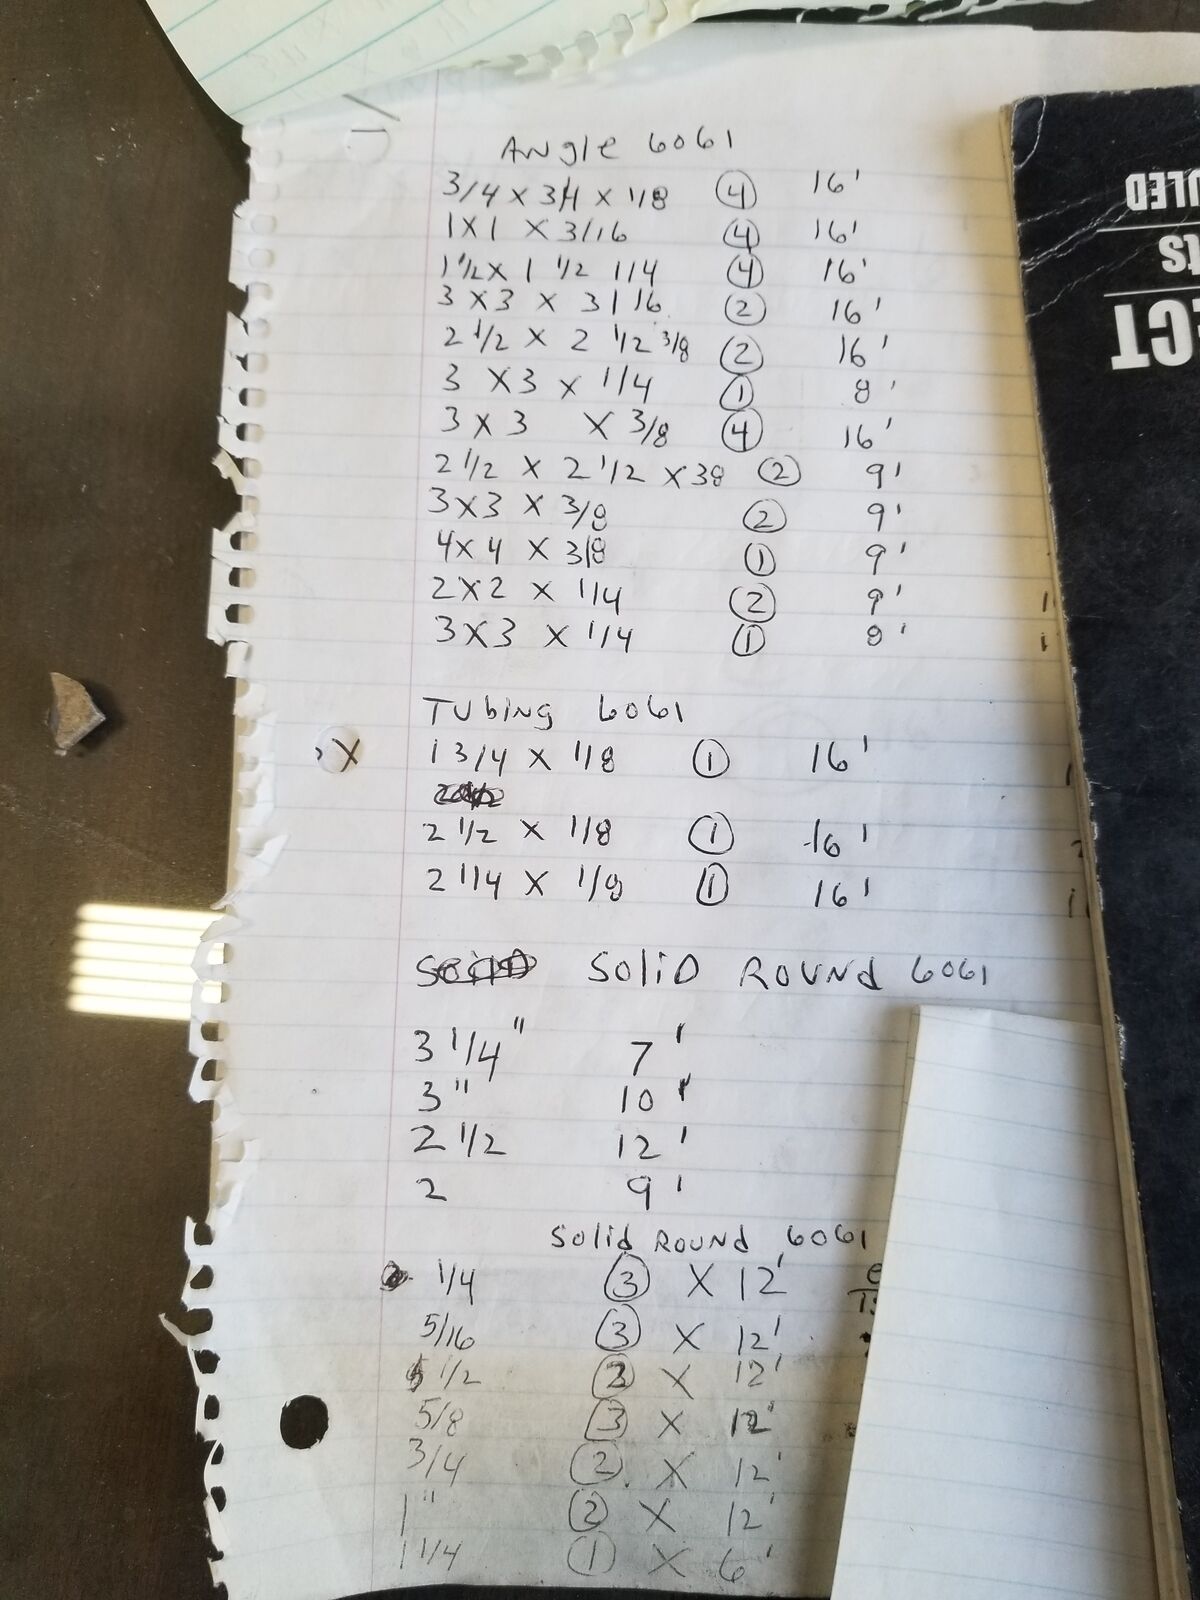 Angle 6061
3/4 x 3/4 x 1/8 4 16'
1x1 x 3/16 4 16'
1 1/2 x 1 1/2 1/4 4 16'
3 x 3 x 3/16 2 16'
2 1/2 x 2 1/2 3/8 2 16'
3 x 3 x 1/4 1 8'
3 x 3 x 3/8 4 16'
2 1/2 x 2 1/2 x 38 2 9'
3x3 x 3/8 2 9'
4x4 x 3/8 1 9'
2x2 x 1/4 2 9'
3x3 x 1/4 1 8'
Tubing 6061
X 1 3/4 x 1/8 1 16'
2 1/2 x 1/8 1 16'
2 1/4 x 1/8 1 16'
Solid Round 6061
3 1/4" 7'
3" 10'
2 1/2 12'
2 9'
Solid Round 6061
1/4 3 x 12'
5/16 3 x 12'
1/2 x 12'
5/8 3 x 12'
3/4 2 x 12'
1" 2 x 12'
1 1/4 1 x 6'
ULED
TS
ECT